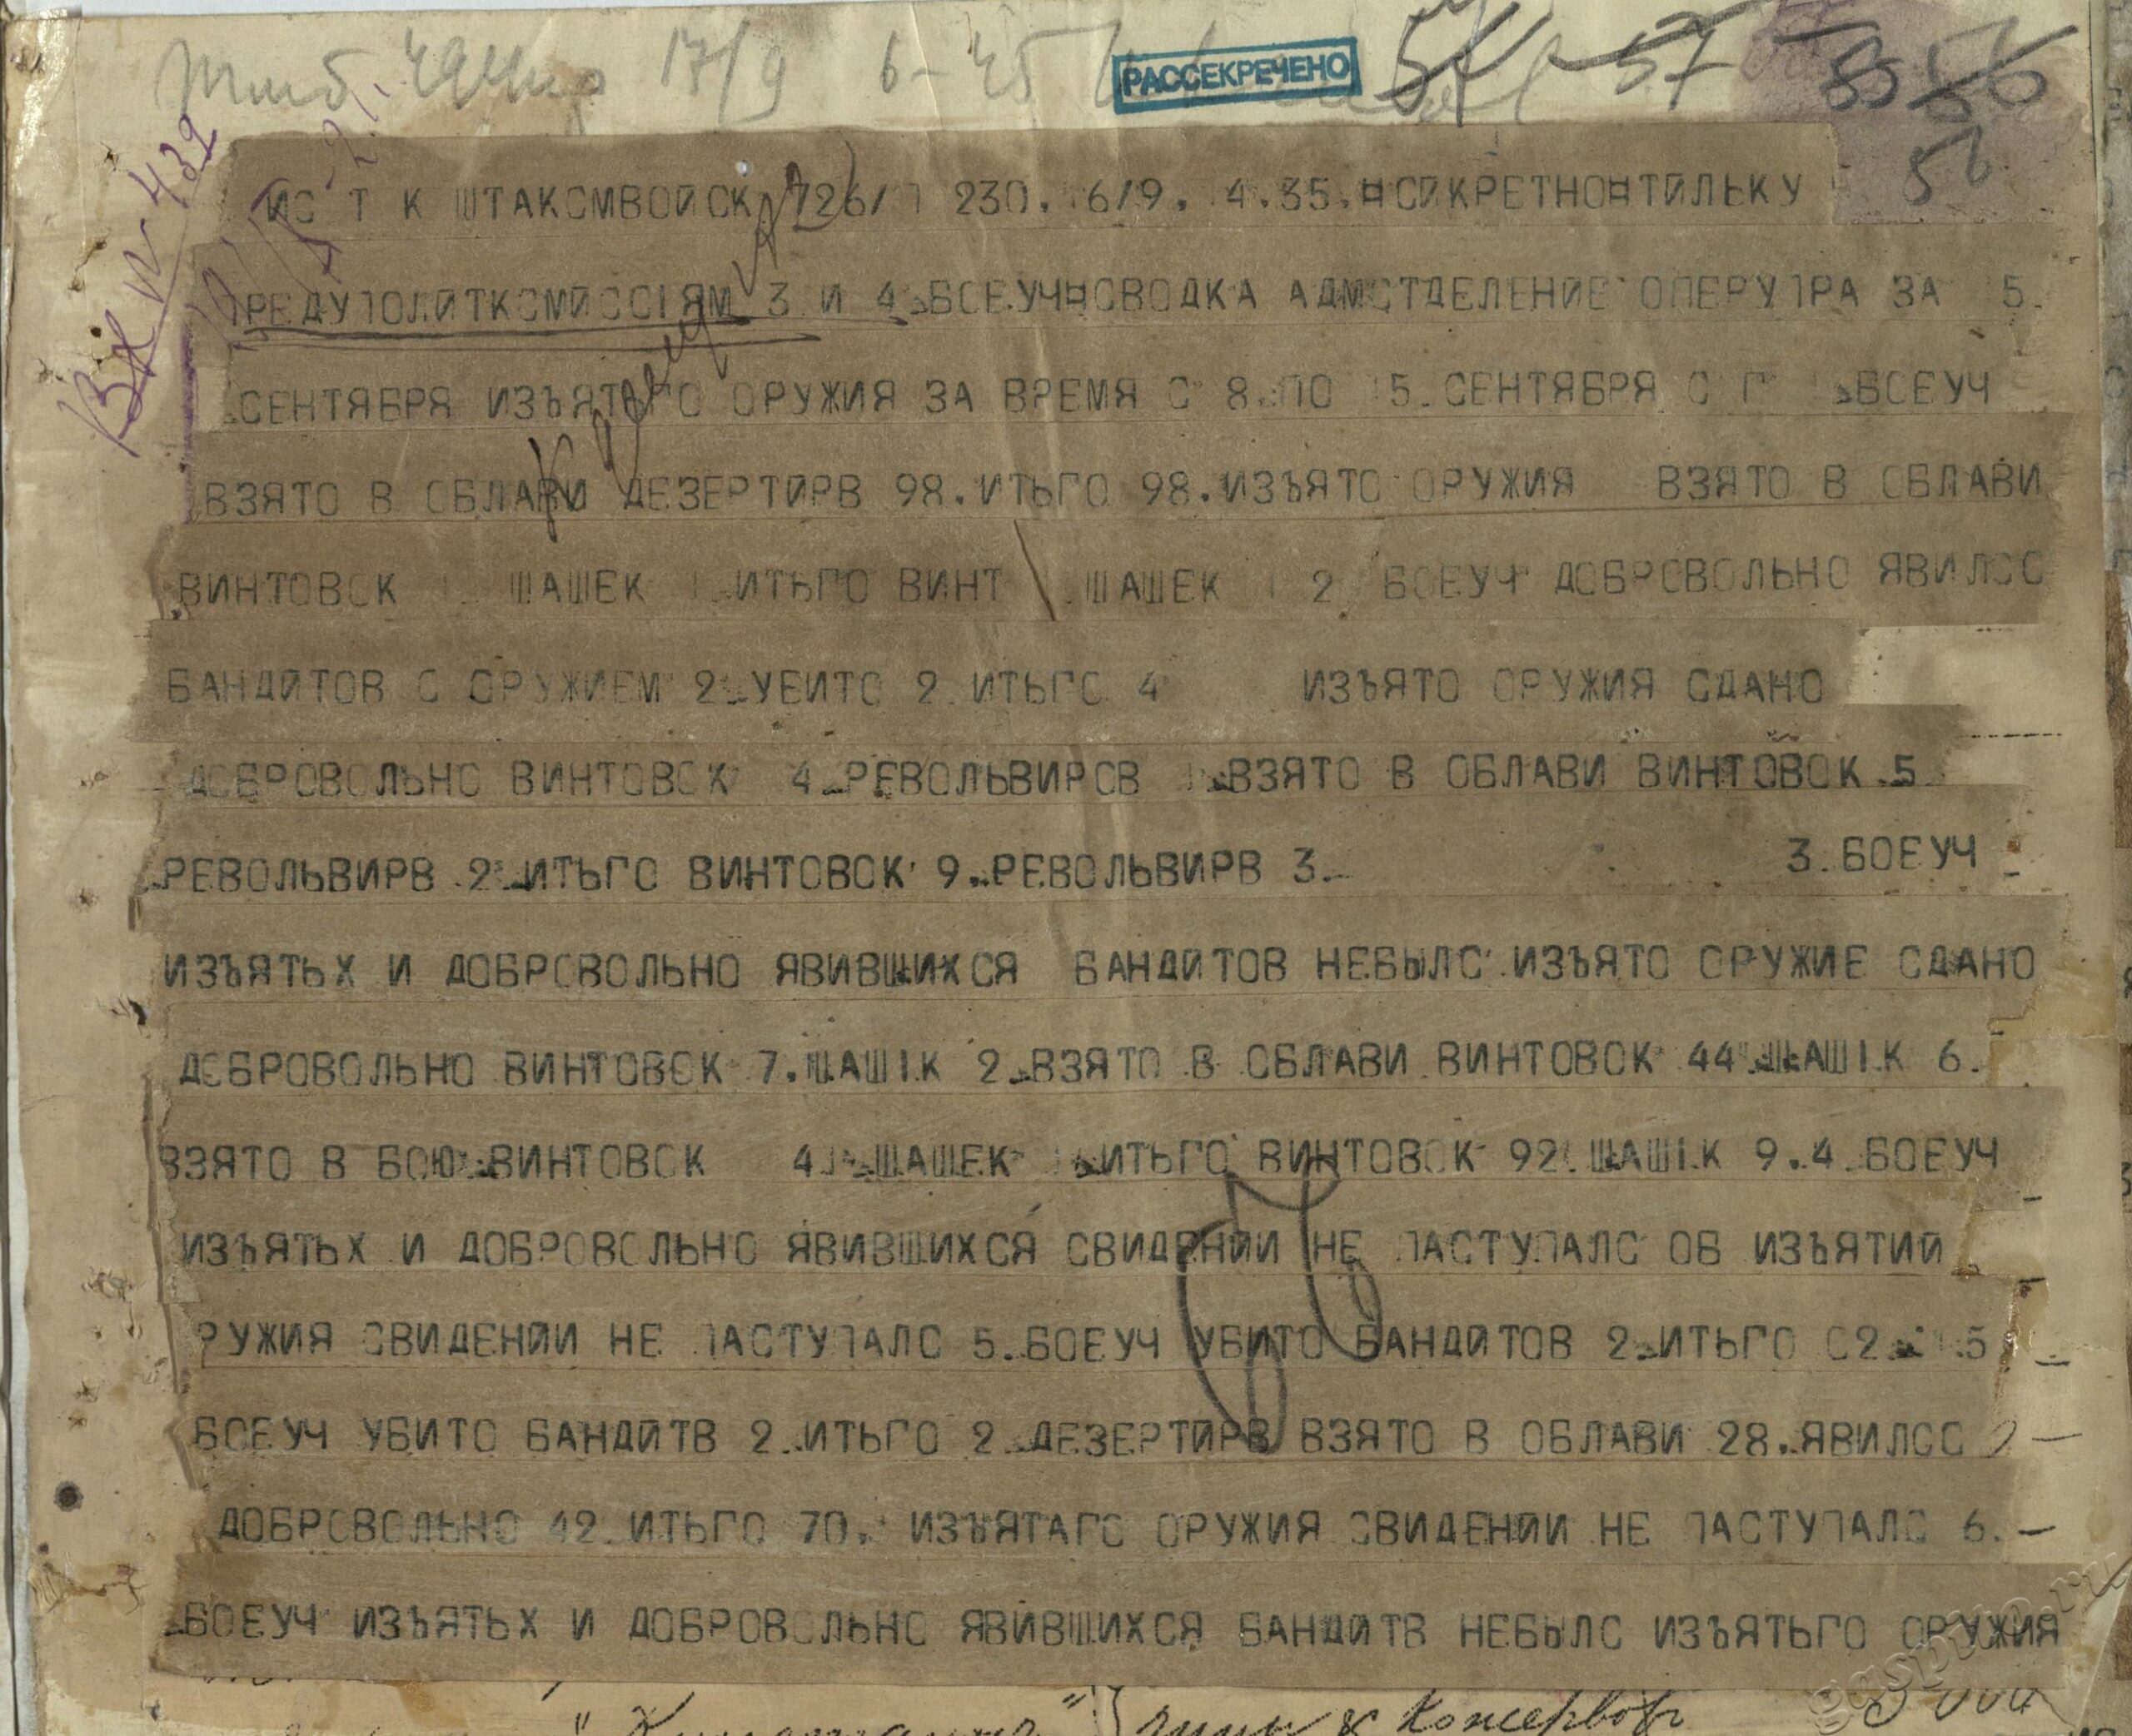 17/9 6-45
РАССЕКРЕЧЕНО
57 57 55 56
56
Вх № 439
ИС Т К ШТАКСМВОЙСК 726/ 230. 6/9. 4.35.¤СИКРЕТНО¤ТИЛЬКУ
ПРЕДУПОЛИТКСМИССIЯМ 3 И 4 БСЕУЧ¤СВОДКА АДМСТДЕЛЕНИЕ ОПЕРУПРА ЗА 5
СЕНТЯБРЯ ИЗЪЯТЬГО ОРУЖИЯ ЗА ВРЕМЯ С 8 ПО 5 СЕНТЯБРЯ С Г БСЕУЧ
ВЗЯТО В СБЛАВИ ДЕЗЕРТИРВ 98.ИТЬГО 98.ИЗЪЯТО ОРУЖИЯ ВЗЯТО В СБЛАВИ
ВИНТОВСК ШАШЕК ИТЬГО ВИНТ ШАШЕК 2 БОЕУЧ ДОБРСВОЛЬНО ЯВИЛСС
БАНДИТОВ С ОРУЖИЕМ 2 УБИТО 2 ИТЬГО 4 ИЗЪЯТО ОРУЖИЯ СДАНО
ДОБРОВОЛЬНО ВИНТОВСК 4 РЕВОЛЬВИРОВ ВЗЯТО В ОБЛАВИ ВИНТОВОК 5
РЕВОЛЬВИРВ 2 ИТЬГО ВИНТОВОК 9.РЕВОЛЬВИРВ 3 3.БОЕУЧ
ИЗЪЯТЬХ И ДОБРСВОЛЬНО ЯВИВШИХСЯ БАНДИТОВ НЕБЫЛС ИЗЪЯТО СРУЖИЕ СДАНО
ДСБРОВОЛЬНО ВИНТОВСК 7.ШАШIК 2 ВЗЯТО В СБЛАВИ ВИНТОВОК 44 ШАШIК 6.
ВЗЯТО В БОЮ ВИНТОВСК 4 ШАШЕК ИТЬГО ВИНТОВОК 92 ШАШIК 9.4 БОЕУЧ
ИЗЪЯТЬХ И ДОБРОВСЛЬНО ЯВИВШИХСЯ СВИДЕНИИ НЕ ПАСТУПАЛС ОБ ИЗЪЯТИИ
РУЖИЯ СВИДЕНИИ НЕ ПАСТУПАЛС 5.БОЕУЧ УБИТО БАНДИТОВ 2 ИТЬГО С2 5
БОЕУЧ УБИТО БАНДИТВ 2 ИТЬГО 2 ДЕЗЕРТИРВ ВЗЯТО В ОБЛАВИ 28.ЯВИЛСС
ДОБРСВОЛЬНО 42 ИТЬГО 70. ИЗЪЯТАГС ОРУЖИЯ СВИДЕНИИ НЕ ПАСТУПАЛС 6.
БОЕУЧ ИЗЪЯТЬХ И ДОБРОВСЛЬНО ЯВИВШИХСЯ БАНДИТВ НЕБЫЛС ИЗЪЯТЬГО ОРУЖИЯ
gaspiko.ru